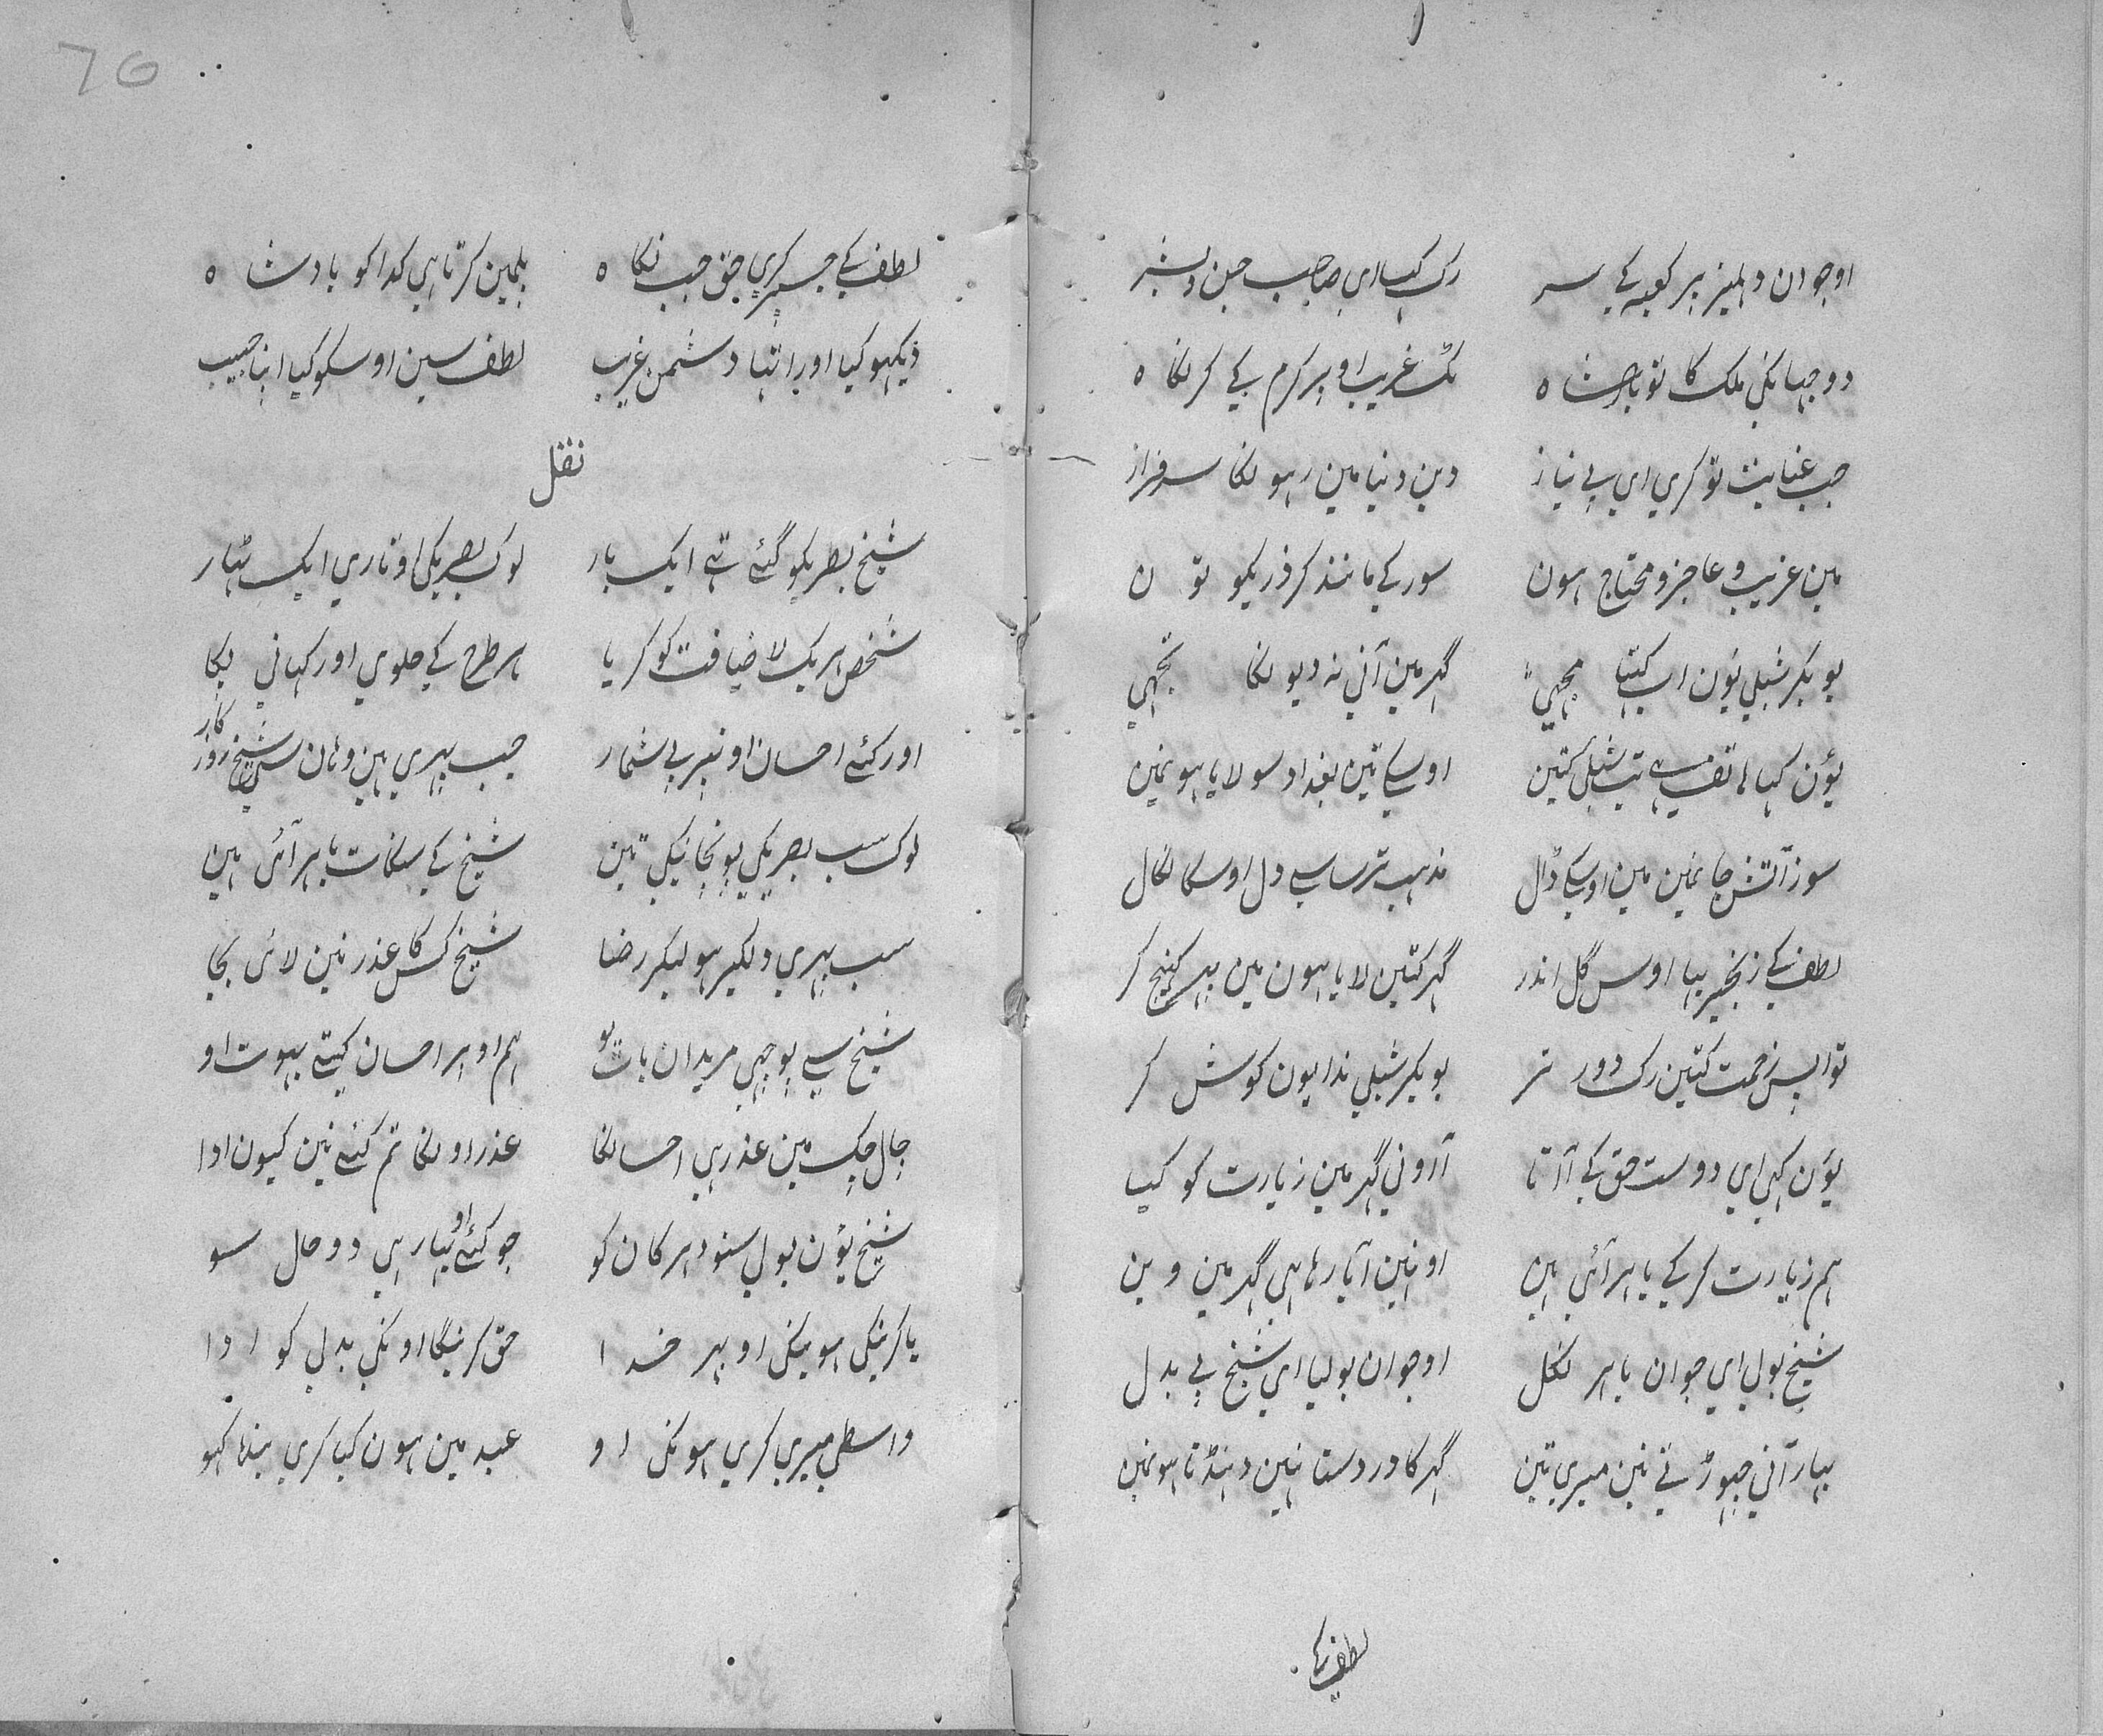 اوجوان دہلیز پر کعبہ کے سر رک کہا ای صاحب جن و بشر
دو جہانکی ملک کا تو بادشاہ تک غریب اوپر کرم کے کر نکاہ
جب عنایت تو کری ای بی نیاز دین دنیا مین رہونکا سرفراز
مین غریب و عاجز و محتاج ہون سور کے مانند کر ذریکو تون
بوبکر شبلی نؤن اب کہتا مجہی گہر مین آنی نہ دیونکا تجہی
یؤن کہا ہاتف نے تب شبلی کتین اوسکے تین بغداد سو لایا ہونمین
سوز آتش جانمین مین اوسکے ڈال مذہب ترسا سے دل اوسکا نکال
لطف کے زنجیر بہا اوس گل اندر گہر کتین لایا ہون مین پہر کہینچ کر
تو اپس زحمت کتین رک دور تر بوبکر شبلی ندا یون کوش کر
یؤن کہی ای دوست حق کے آ آتا آ اونی گہر مین زیارت کو کیا
ہم زیارت کر کے باہر آئی ہین اونہین آیا رہا ہی گہر مین وین
شیخ بولی ای جوان باہر نکل اوجوان بولیا ای شیخ بی بدل
بہار آنی چہوڑتے نین میری تین گہر کا در دستا نہین دہنڈتا ہونمین
لطف کے
76
لطف کے جسپر کری حق جب نکاہ پلمین کرتا ہی کدا کو بادشاہ
دیکہو کیا اور اتہا دشمن غریب لطف سین اوسکو کیا اپنا حبیب
نقل
شیخ بصریکو گئے تہے ایک بار لوک بصریکی اوتاری ایک ٹہار
شخص ہر یک لا ضیافت کو کریا ہر طرح کے حلوی اور کہانی پکا
اور کئے احسان اونپر بی شمار جب پہری ہین وہان سی شیخ روزکار
لوک سب بصریکی پونچانیکی تین شیخ کے سنکات باہر آئی ہین
سب پہری دلکیر ہو لیکر رضا شیخ کس کا عذر نین لائی بجا
شیخ سے پوچہی مریدان بات یو ہم اوپر احسان کیتے بہوت او
چال جک مین عذر ہی احسانکا عذر اونکا تم کئے نین کیون ادا
شیخ یؤن بولی سنو دہر کان کو جو کئے او پیار ہی دو حال سو
یا کرینکی ہوینکی او بہر خدا حق کرینکا اونکی بدلی کو ادا
واسطی میری کری ہونکی او عبد مین ہون کیا کری بندا کہو